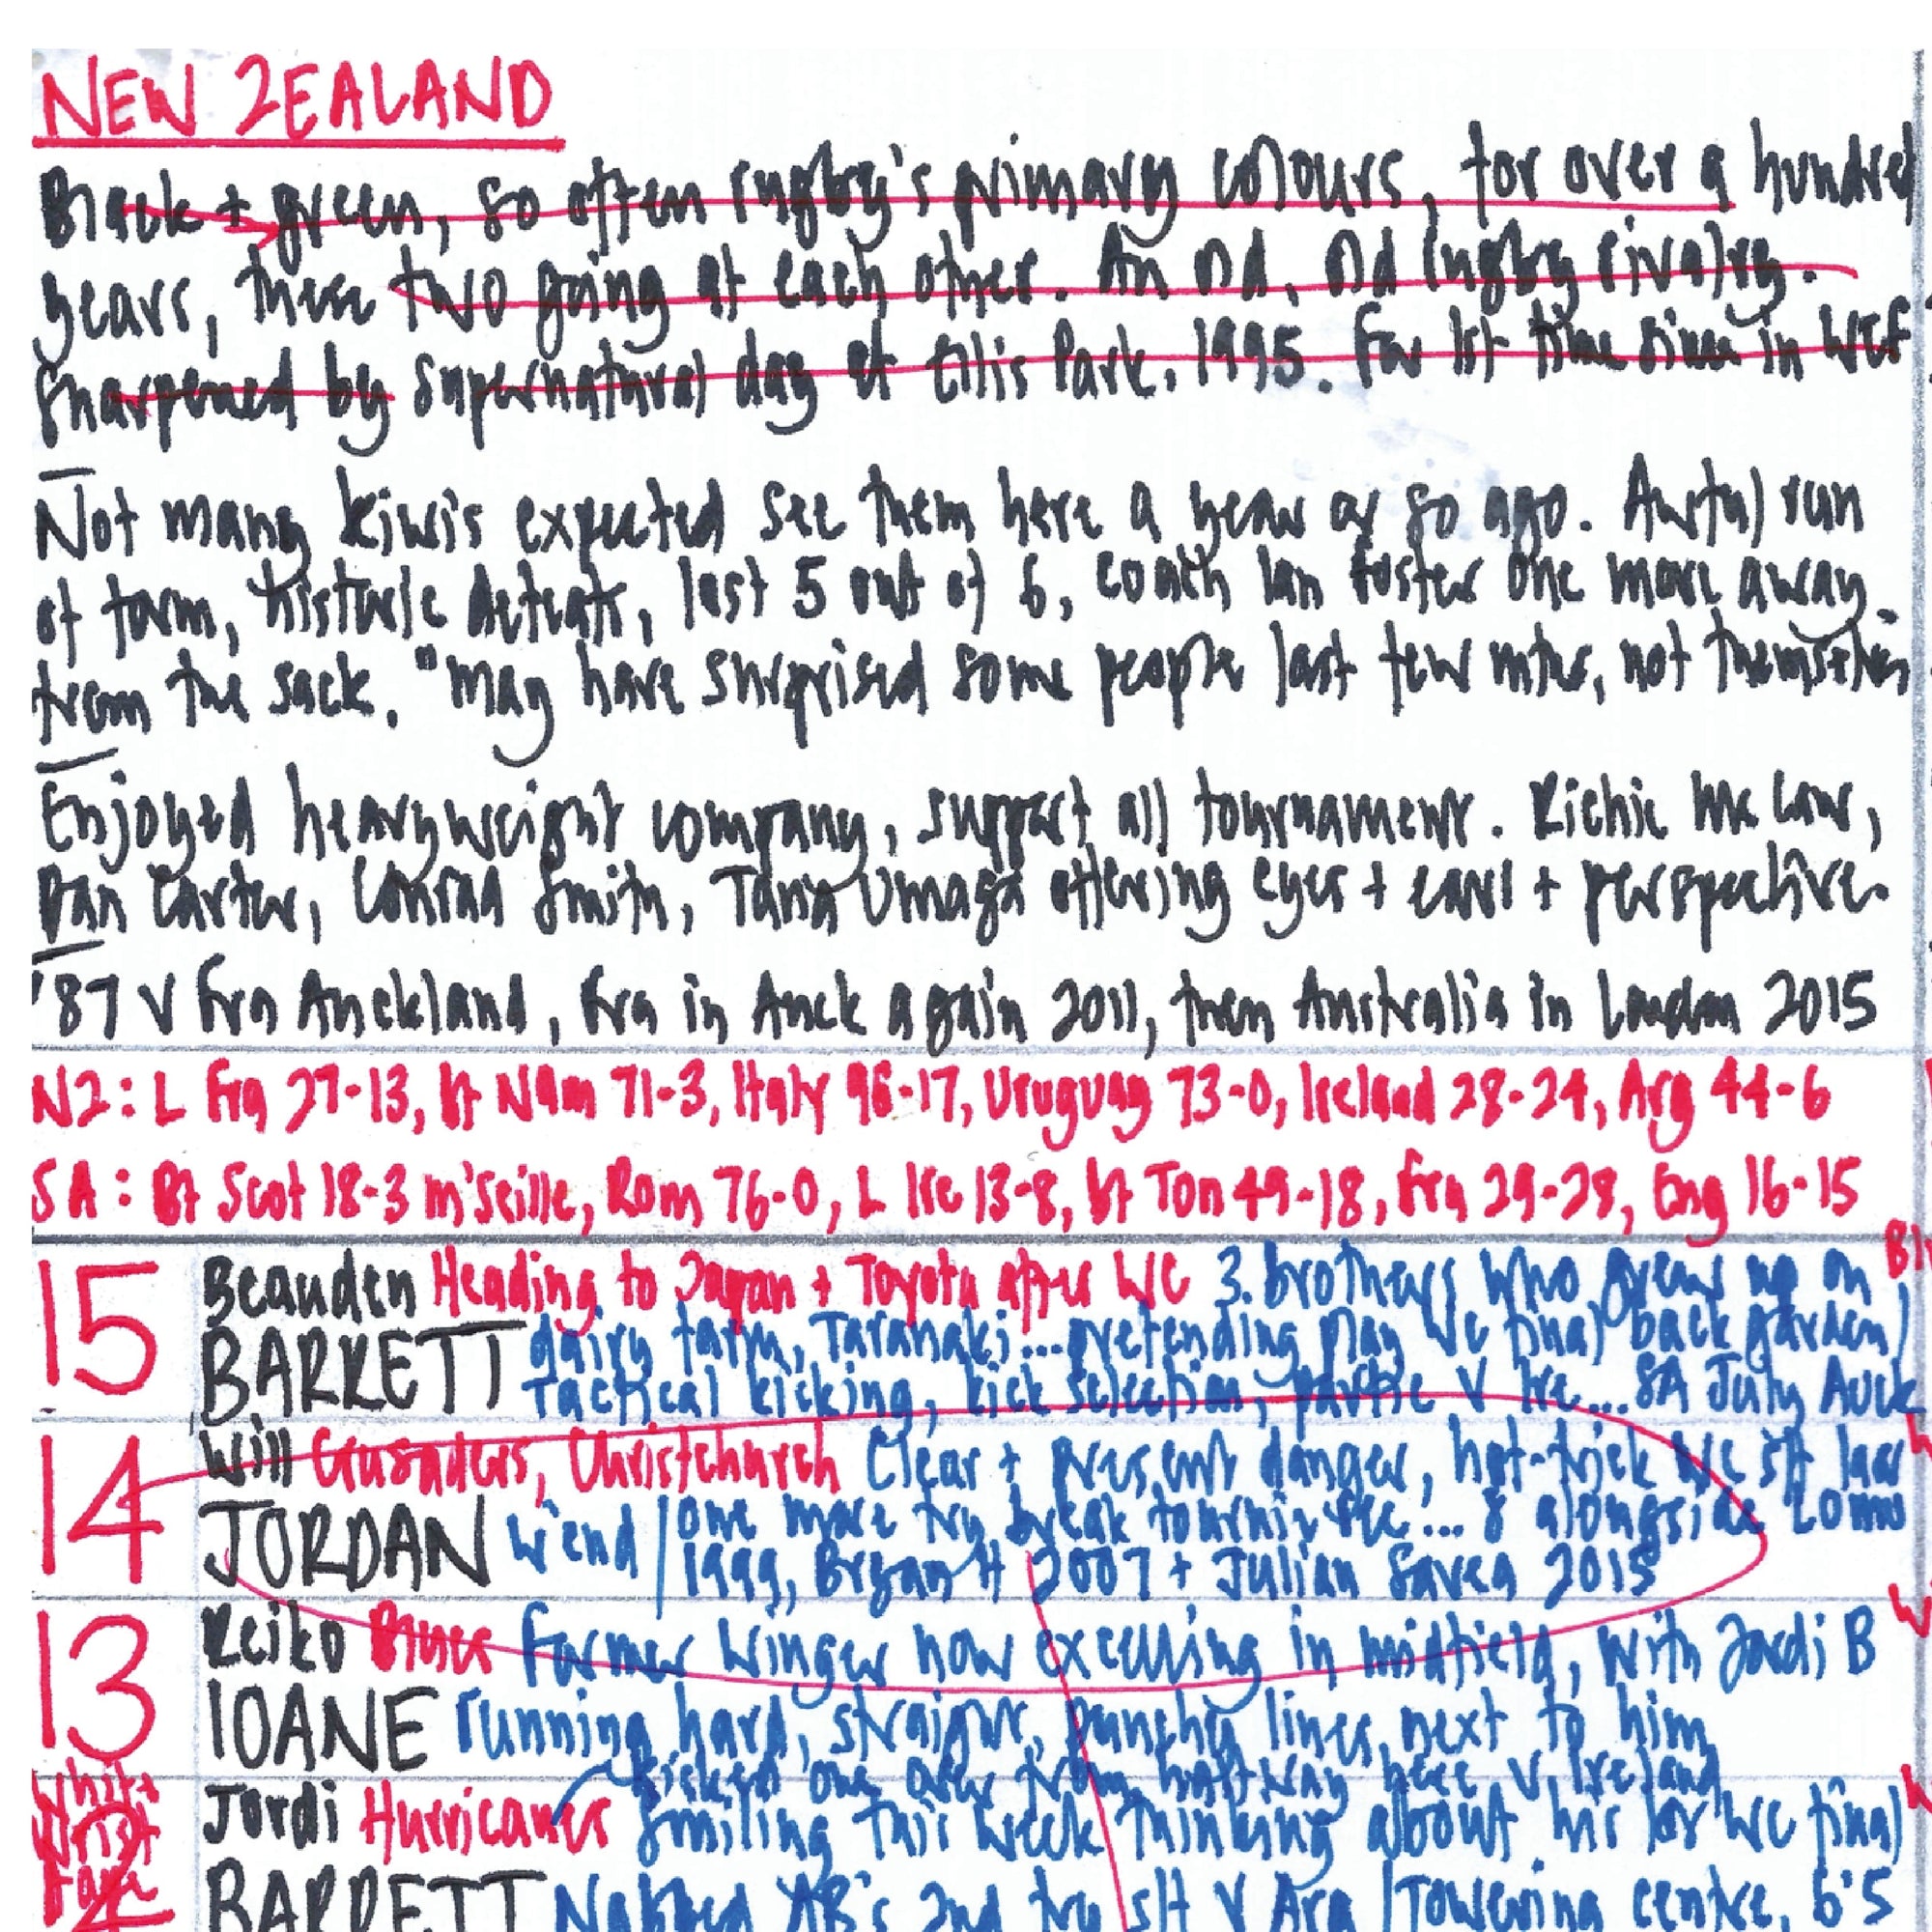 NEW ZEALAND
Black + green, so often rugby's primary colours, for over a hundred
years, these two going at each other. An old, old rugby rivalry.
Sharpened by supernatural day at Ellis Park, 1995. For 1st time since in WCF
Not many Kiwis expected see them here a year or so ago. Awful run
of form, historic defeats, lost 5 out of 6, coach Ian Foster one more away
from the sack. "May have surprised some people last few mths, not themselves
Enjoyed heavyweight company, support all tournament. Richie McCaw,
Dan Carter, Conrad Smith, Tana Umaga offering eyes + ears + perspective.
'87 V Fra Auckland, Fra in Auck again 2011, then Australia in London 2015
NZ: L Fra 27-13, bt Nam 71-3, Italy 96-17, Uruguay 73-0, Ireland 28-24, Arg 44-6
SA: Bt Scot 18-3 m'seille, Rom 76-0, L Ire 13-8, bt Ton 49-18, Fra 29-28, Eng 16-15
15 Beauden Heading to Japan + Toyota after WC 3 brothers who grew up on
BARRETT dairy farm, Taranaki...pretending play WC final back garden/
Tactical kicking, kick selection, partic V Ire...SA July Auck
14 Will Crusaders, Christchurch Clear + present danger, hat-trick WC s/f last
JORDAN w'end / one more try break tourn't rec...8 alongside Lomu
1999, Bryan H 2007 + Julian Savea 2015
13 Reiko Blues Former winger now excelling in midfield, with Jordi B
IOANE running hard, straight, punchy lines next to him
Kicked one over from halfway here V Ireland
White Wrist Tape
Jordi Hurricanes Smiling this week thinking about his WC final
BARRETT Nabbed AB's 2nd try s/f V Arg / Towering centre, 6'5